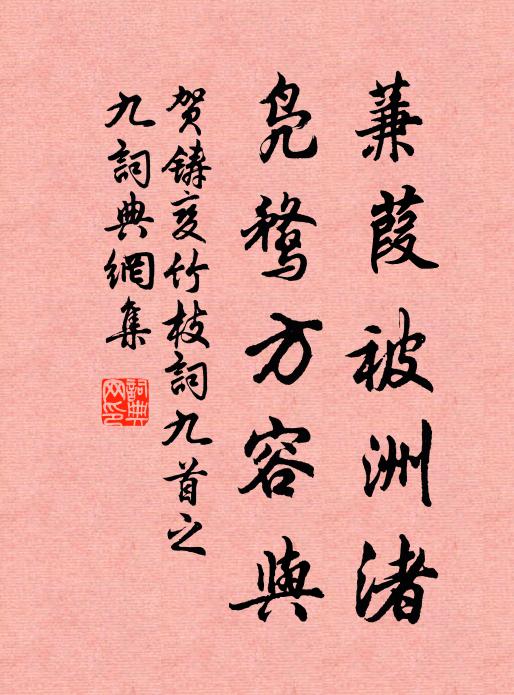 蒹葭被洲渚
凫鹜方容與
贺鑄变竹枝詞九首之
九詞典網集
詞典
网印